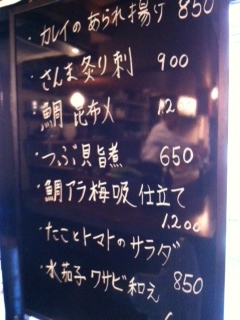 ・カレイのあられ揚げ 850
・さんま炙り刺 900
・鯛 昆布〆 1200
・つぶ貝旨煮 650
・鯛アラ梅吸仕立て
1.200
・たことトマトのサラダ
・水茄子ワサビ和え 850